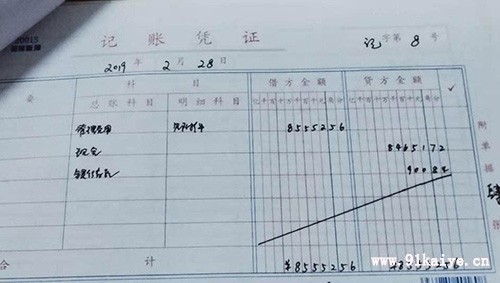 记账凭证
记字第 8 号
2019 年 2 月 28 日
要 科目 借方金额 贷方金额 ✓
总账科目 明细科目 亿千百十万千百十元角分 亿千百十万千百十元角分
管理费用 8555256
现金 8465172
银行存款 90084
附单据 肆 张
合计 ¥8555256 ¥8555256
www.91kaiye.cn